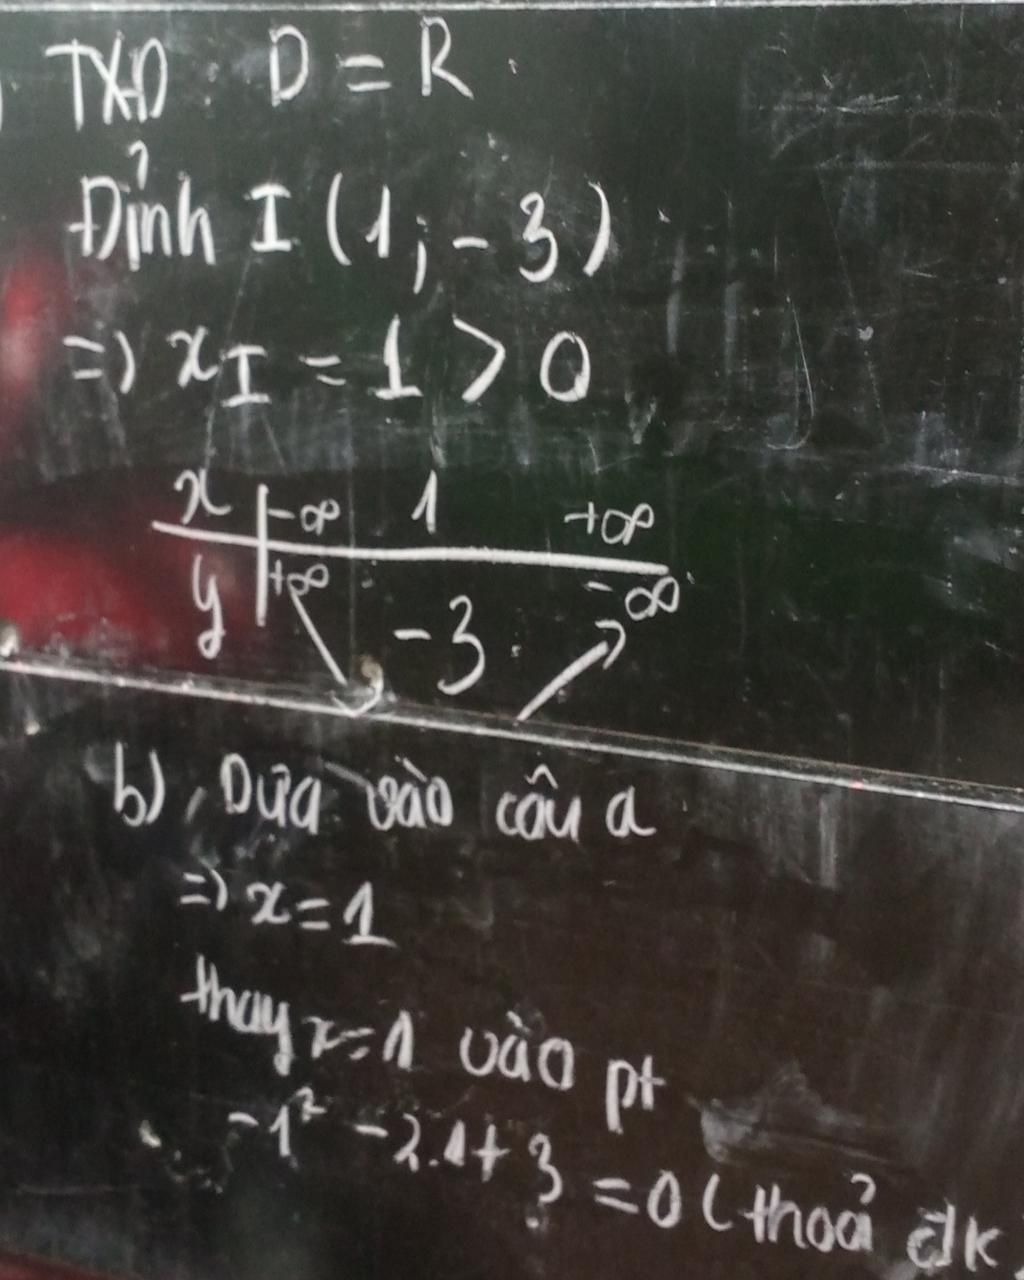 TXĐ: D = R
Đỉnh I (1; -3)
=> xI = 1 > 0
x -∞ 1 +∞
y +∞ -3 -∞
b), Dựa vào câu a
=> x = 1
thay x = 1 vào pt
-1² - 2.1 + 3 = 0 (thoả đk)